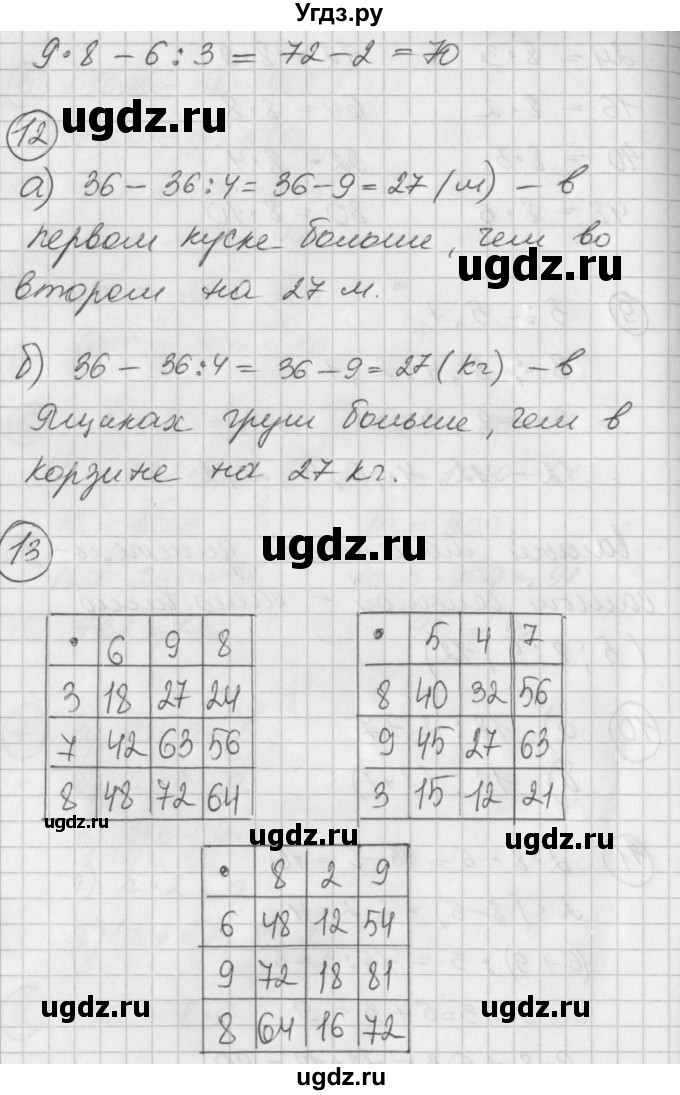 Угдз.ру
9·8 − 6:3 = 72−2 = 70
ugdz.ru
12
а) 36 − 36:4 = 36−9 = 27 (м) − в
первом куске больше, чем во
ugdz.ru
втором на 27 м.
б) 36 − 36:4 = 36−9 = 27 (кг) − в
ящиках груш больше, чем в
корзине на 27 кг.
ugdz.ru
13
· 6 9 8
3 18 27 24
7 42 63 56
8 48 72 64
· 5 4 7
8 40 32 56
9 45 27 63
3 15 12 21
ugdz.ru
ugdz.ru
ugdz.ru
· 8 2 9
6 48 12 54
9 72 18 81
8 64 16 72
ugdz.ru
ugdz.ru
ugdz.ru